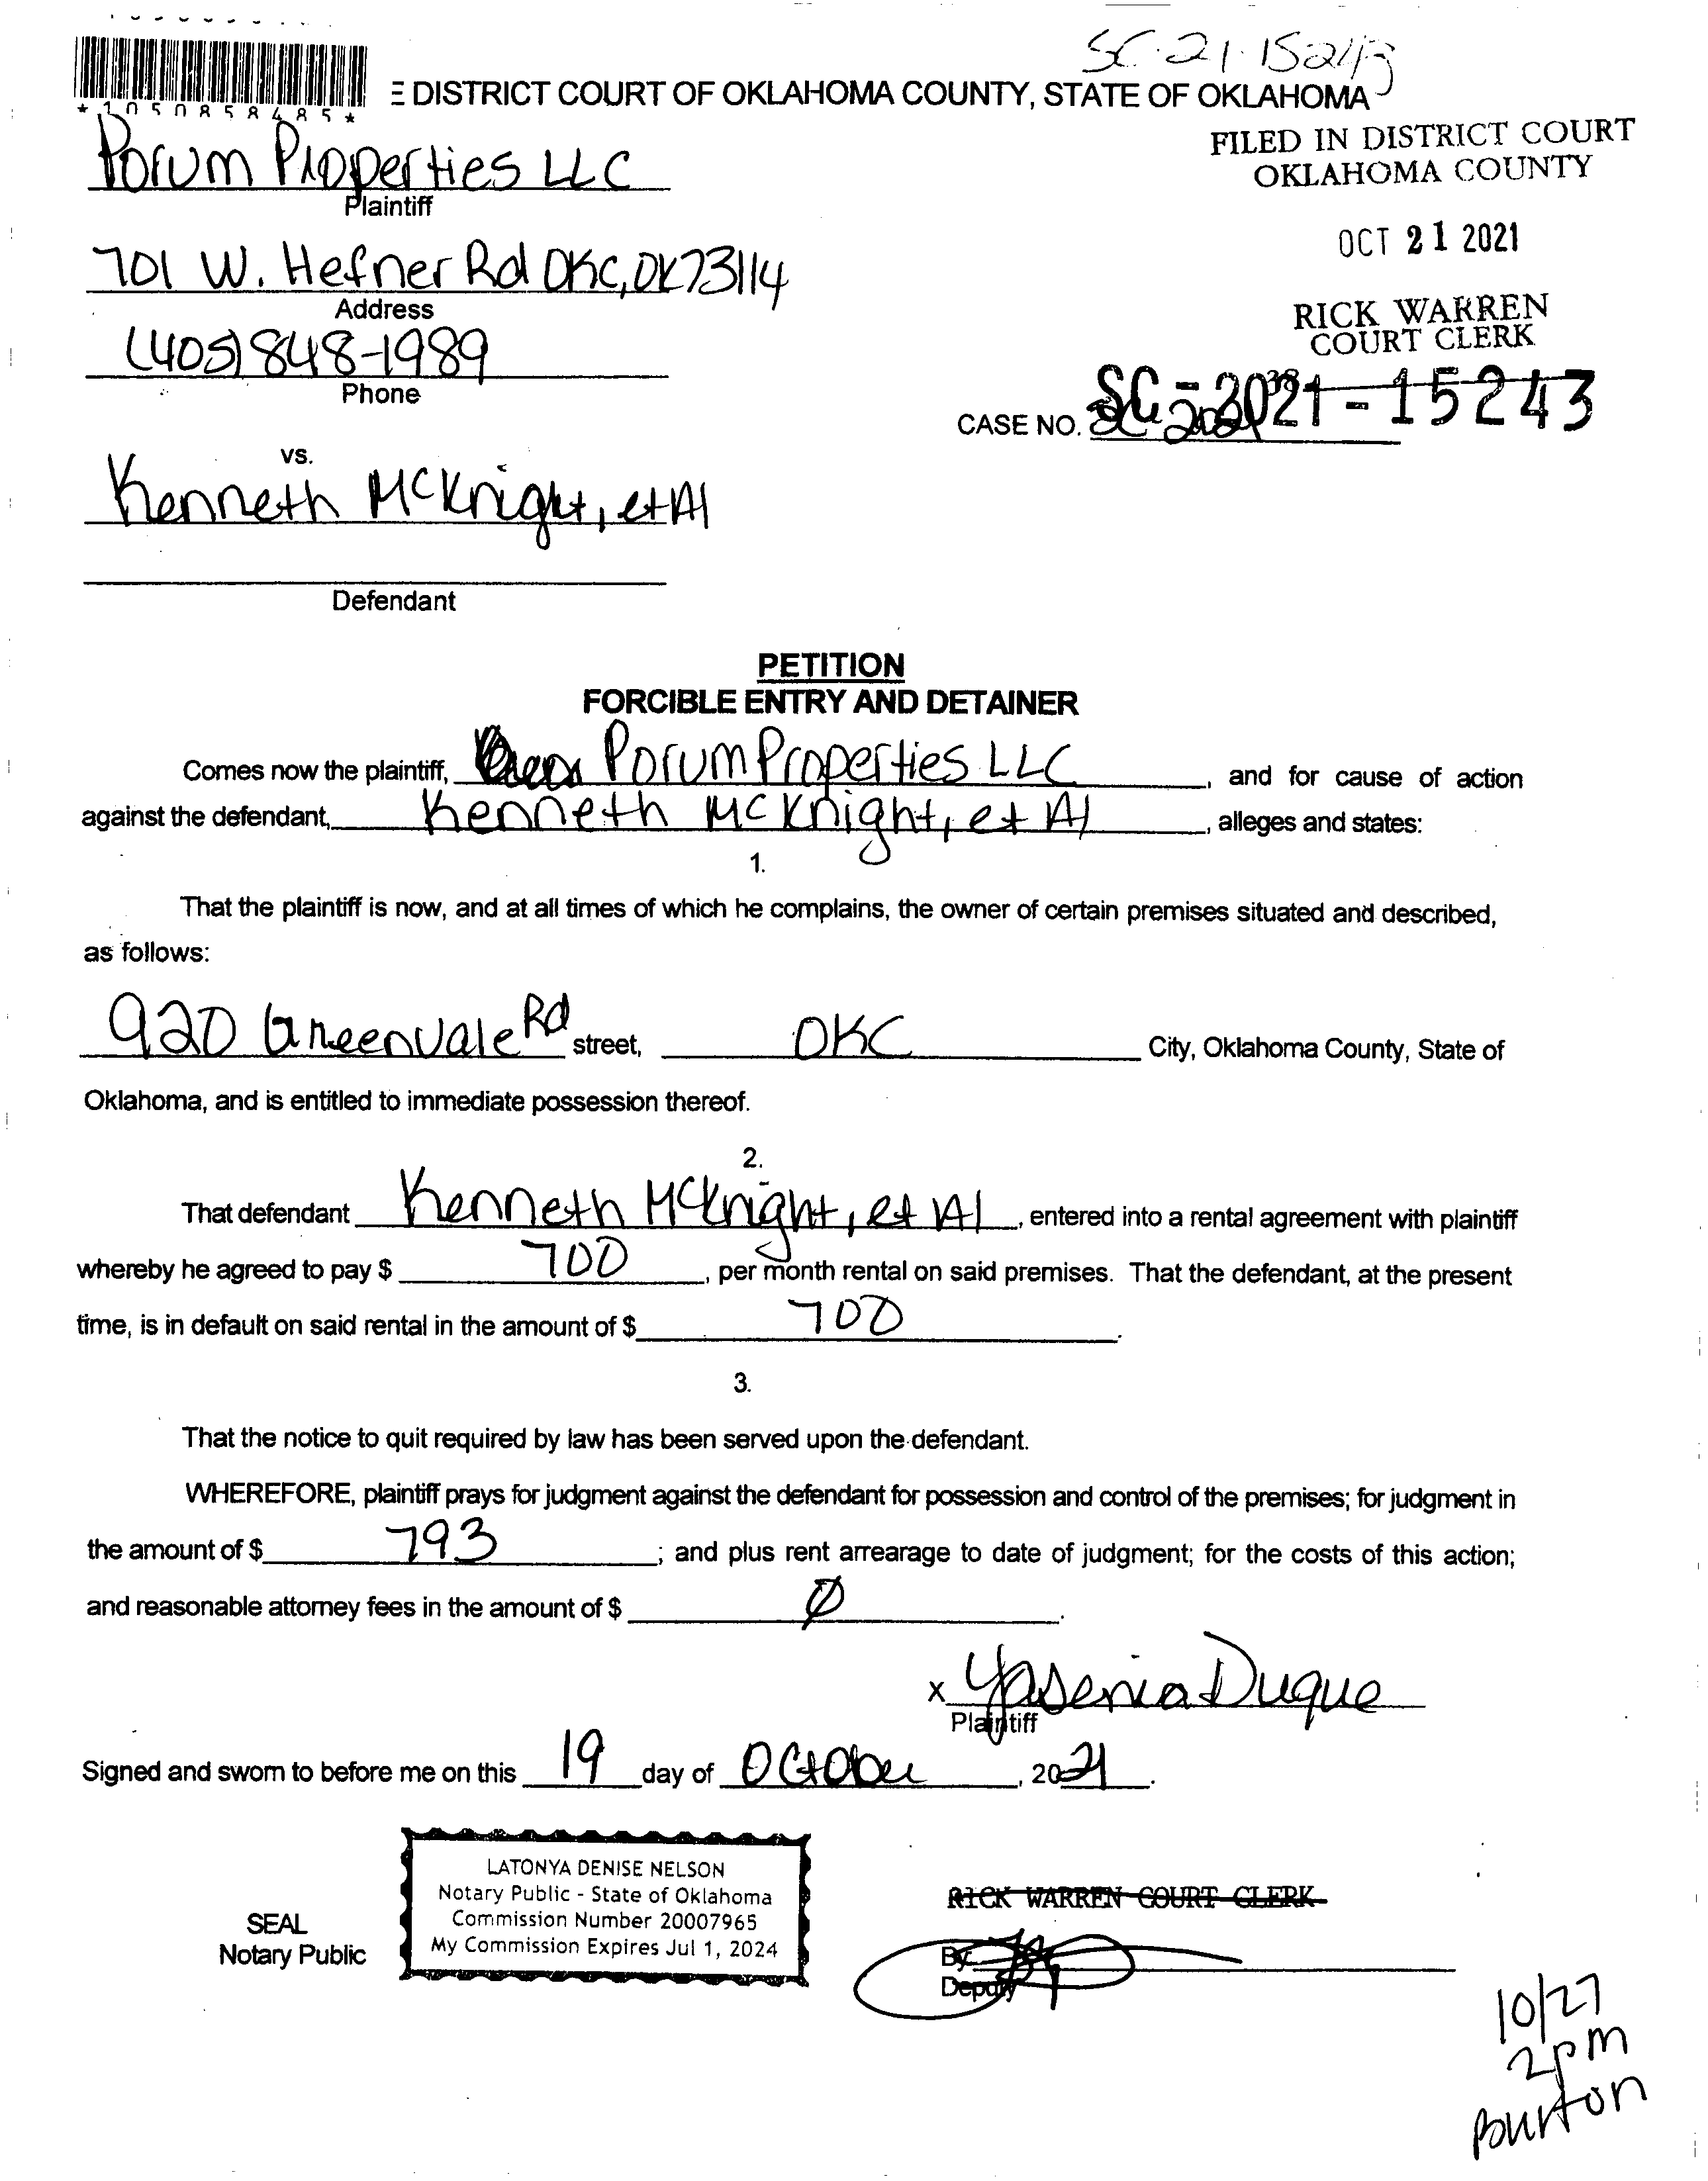 SC-21-15243
*1050858485*
E DISTRICT COURT OF OKLAHOMA COUNTY, STATE OF OKLAHOMA
FILED IN DISTRICT COURT
OKLAHOMA COUNTY
Porum Properties LLC
Plaintiff
OCT 21 2021
701 W. Hefner Rd OKC, OK 73114
Address
RICK WARREN
COURT CLERK
(405) 848-1989
Phone
CASE NO. SC-2021-15243
vs.
Kenneth McKnight, et Al
Defendant
PETITION
FORCIBLE ENTRY AND DETAINER
Comes now the plaintiff, Porum Properties LLC, and for cause of action
against the defendant, Kenneth McKnight, et Al, alleges and states:
1.
That the plaintiff is now, and at all times of which he complains, the owner of certain premises situated and described,
as follows:
920 Greenvale Rd street, OKC City, Oklahoma County, State of
Oklahoma, and is entitled to immediate possession thereof.
2.
That defendant Kenneth McKnight, et Al, entered into a rental agreement with plaintiff
whereby he agreed to pay $ 700, per month rental on said premises. That the defendant, at the present
time, is in default on said rental in the amount of $ 700.
3.
That the notice to quit required by law has been served upon the defendant.
WHEREFORE, plaintiff prays for judgment against the defendant for possession and control of the premises; for judgment in
the amount of $ 793; and plus rent arrearage to date of judgment; for the costs of this action;
and reasonable attorney fees in the amount of $ Ø.
x Yasenia Duque
Plaintiff
Signed and sworn to before me on this 19 day of October, 2021.
LATONYA DENISE NELSON
Notary Public - State of Oklahoma
Commission Number 20007965
My Commission Expires Jul 1, 2024
SEAL
Notary Public
RICK WARREN COURT CLERK
By
Deputy
10/27
2pm
Burton